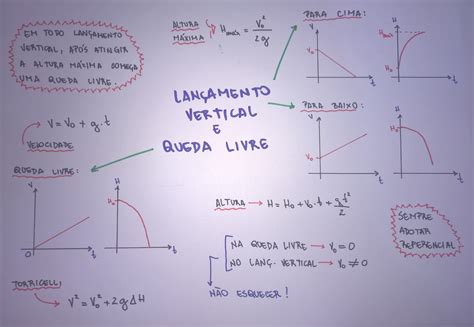 EM TODO LANÇAMENTO
VERTICAL, APÓS ATINGIR
A ALTURA MÁXIMA COMEÇA
UMA QUEDA LIVRE.
ALTURA
MÁXIMA
Hmax = V₀² / 2g
PARA CIMA:
V
V₀
t
H
Hmax
t
LANÇAMENTO
VERTICAL
E
QUEDA LIVRE
V = V₀ + g.t
VELOCIDADE
PARA BAIXO:
V
V₀
t
H
H₀
t
QUEDA LIVRE:
V
0
t
H
H₀
t
ALTURA → H = H₀ + V₀.t + gt²/2
SEMPRE
ADOTAR
REFERENCIAL
NA QUEDA LIVRE → V₀ = 0
NO LANÇ. VERTICAL → V₀ ≠ 0
NÃO ESQUECER!
TORRICELLI
V² = V₀² + 2gΔH